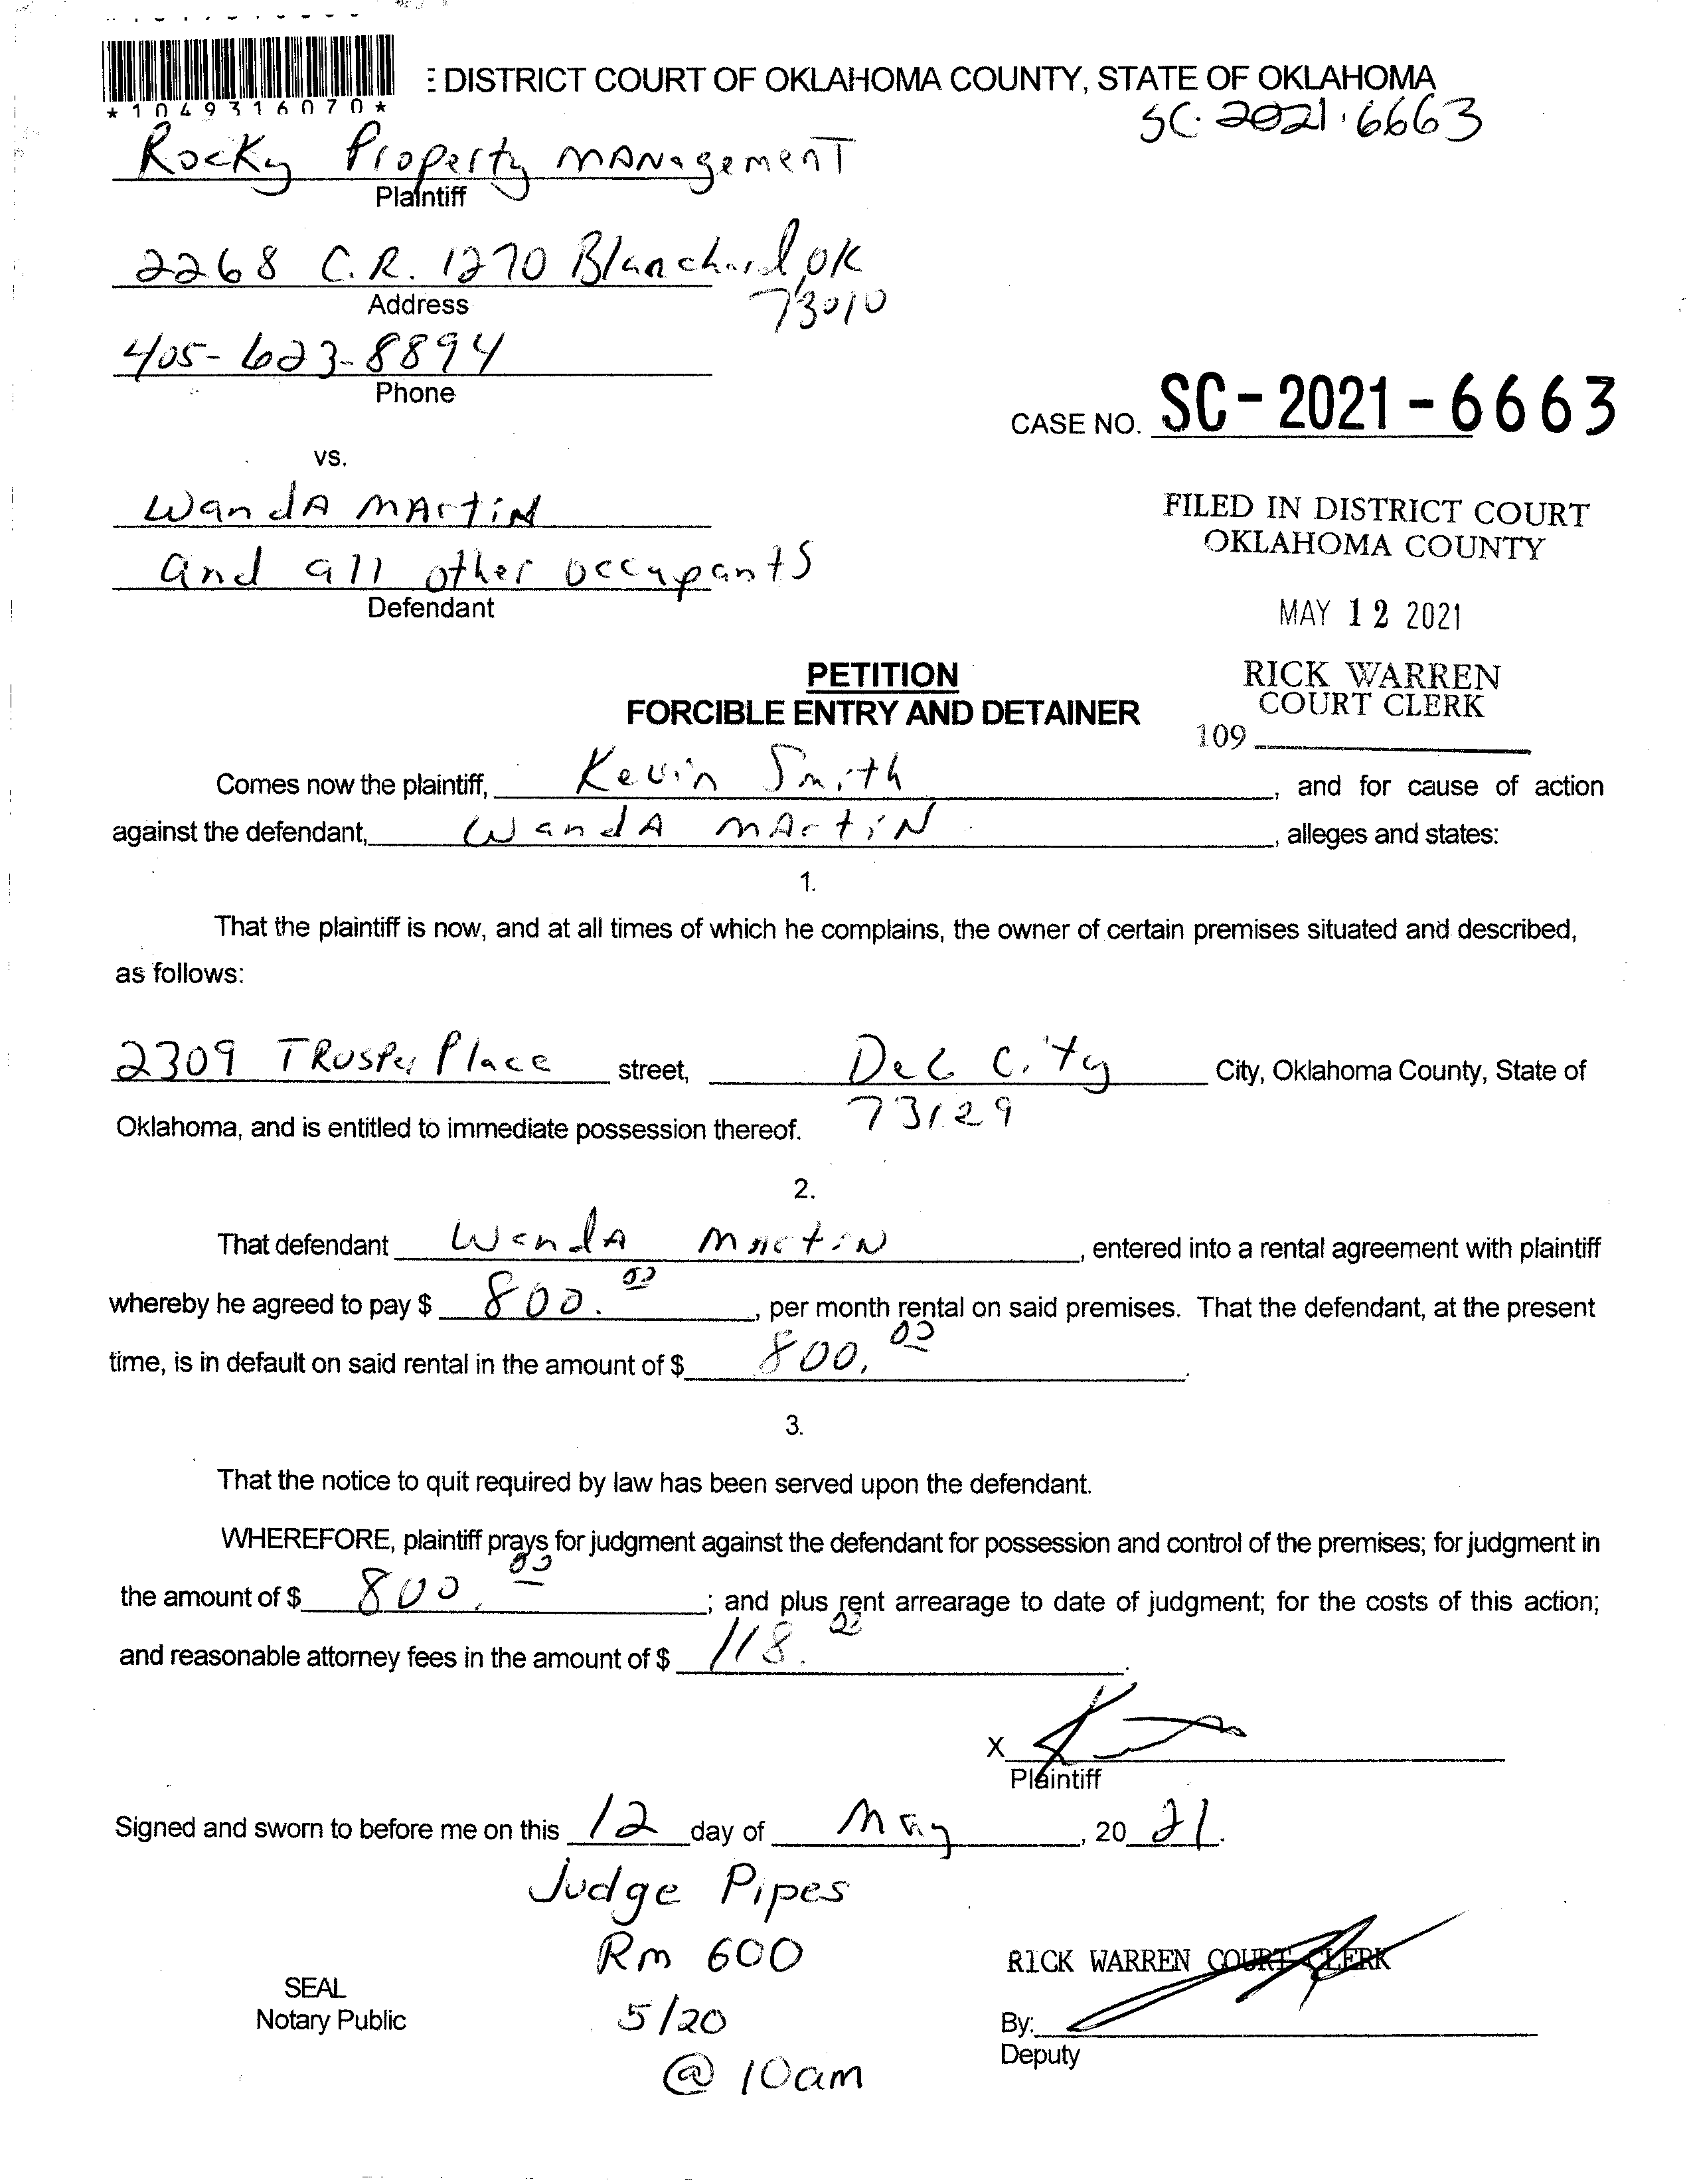 : DISTRICT COURT OF OKLAHOMA COUNTY, STATE OF OKLAHOMA
*1049316070*
SC.2021.6663
Rocky Property Management
Plaintiff
2268 C.R. 1270 Blanchard, OK
73010
Address
405-623-8894
Phone
CASE NO. SC-2021-6663
vs.
Wanda Martin
and all other occupants
Defendant
FILED IN DISTRICT COURT
OKLAHOMA COUNTY
MAY 12 2021
RICK WARREN
COURT CLERK
109
PETITION
FORCIBLE ENTRY AND DETAINER
Comes now the plaintiff, Kevin Smith, and for cause of action
against the defendant, Wanda Martin, alleges and states:
1.
That the plaintiff is now, and at all times of which he complains, the owner of certain premises situated and described,
as follows:
2309 Place street, Del City City, Oklahoma County, State of
73129
Oklahoma, and is entitled to immediate possession thereof.
2.
That defendant Wanda Martin, entered into a rental agreement with plaintiff
whereby he agreed to pay $ 800.00, per month rental on said premises. That the defendant, at the present
time, is in default on said rental in the amount of $ 800.00.
3.
That the notice to quit required by law has been served upon the defendant.
WHEREFORE, plaintiff prays for judgment against the defendant for possession and control of the premises; for judgment in
the amount of $ 800.00; and plus rent arrearage to date of judgment; for the costs of this action;
and reasonable attorney fees in the amount of $ 118.00.
X
Plaintiff
Signed and sworn to before me on this 12 day of May, 2021.
Judge Pipes
Rm 600
5/20
@ 10am
SEAL
Notary Public
RICK WARREN COURT CLERK
By:
Deputy